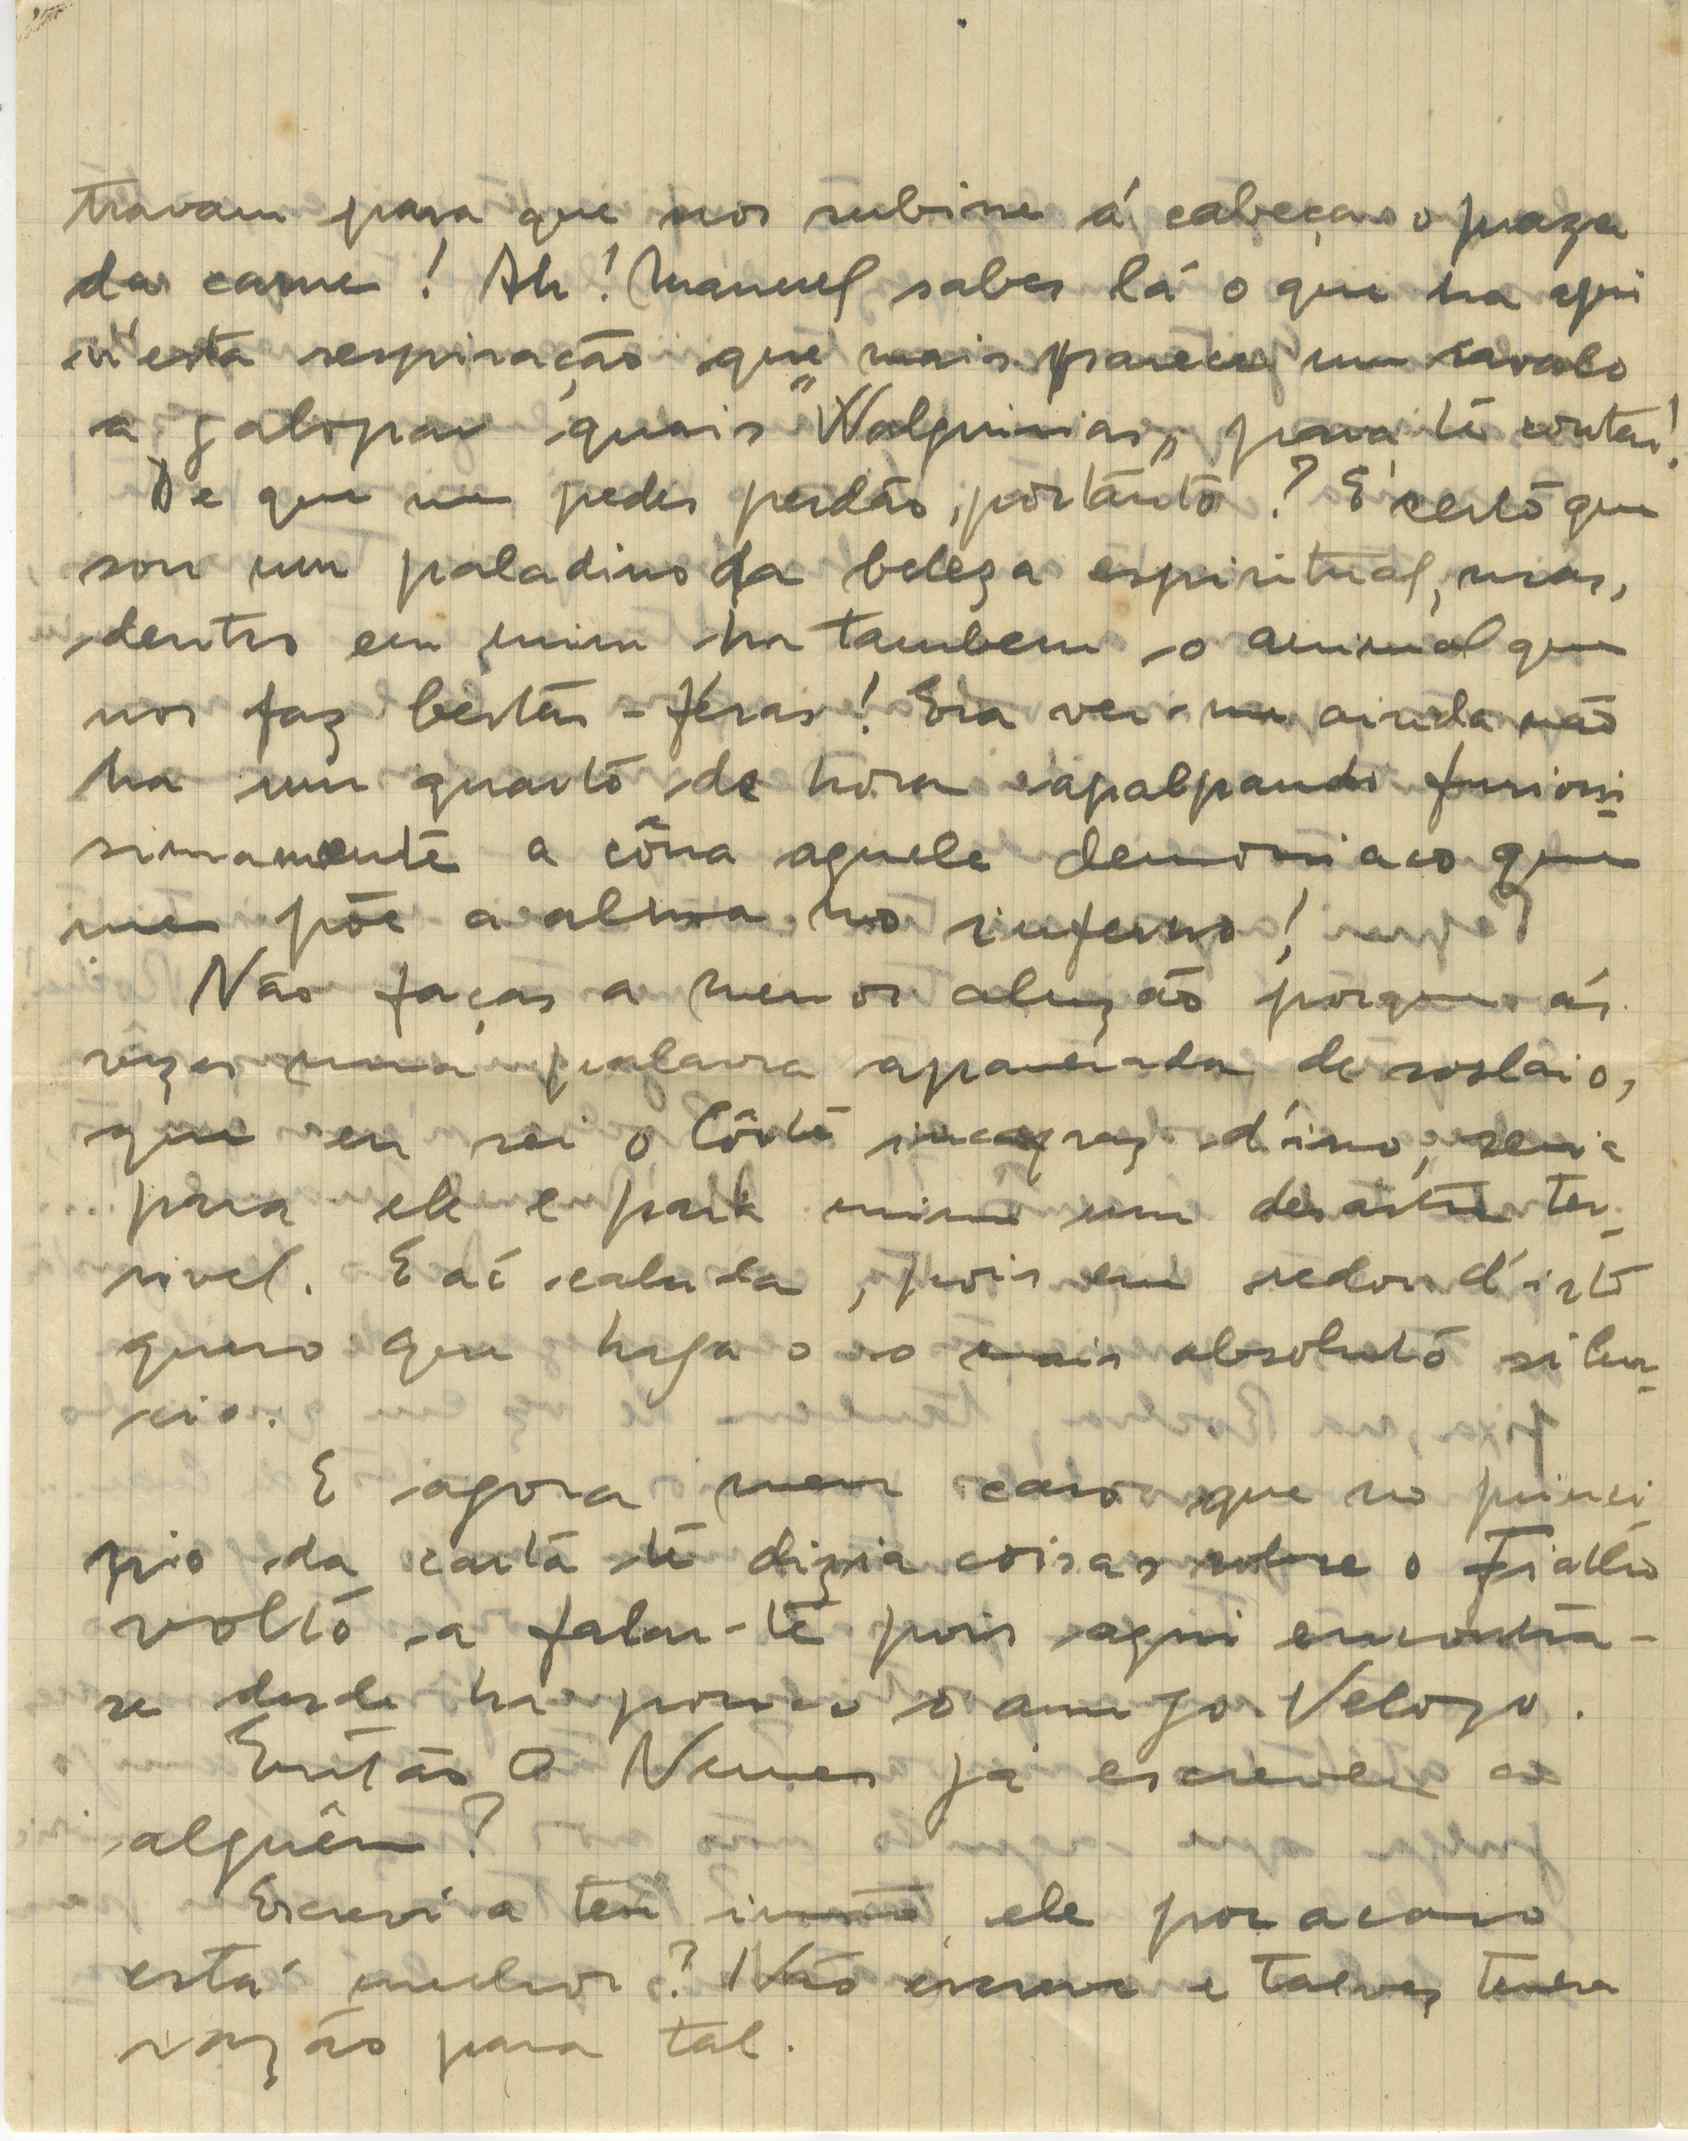 travam para que nos subisse á cabeça o praze
da carne! Ah! Manuel sabes lá o que ha aqui
n'esta respiração que mais parece um cavalo
a galopar quais "Walquirias" para te contar!
De que me pedes perdão, portanto? É certo que
sou um paladino da beleza espiritual, mas,
dentro em mim ha tambem o animal que
nos faz bestas-feras! Era ver-me ainda não
ha um quarto de hora apalpando furiosi-
simamente a côna aquele demoniaco que
me põe a alma no inferno!
Não faças a menor aluzão porque ás
vêzes uma palavra apanhada de soslaio,
que eu sei o Côrte incapaz d'isso, seria
para ele e para mim um desastre ter-
rivel. E aí calada, pois em redor d'isto
quero que haja o mais absoluto silen-
cio.
E agora nem caso que no princi-
pio da carta te dizia coisas sobre o Fialho
volto a falar-te pois aqui encontra-
se desde ha pouco o amigo Velozo.
Então O Nunes já escreveu a
alguêm?
Escrevi a teu irmão, ele por acaso
está melhor? Não escreve e talvez tenha
razão para tal.